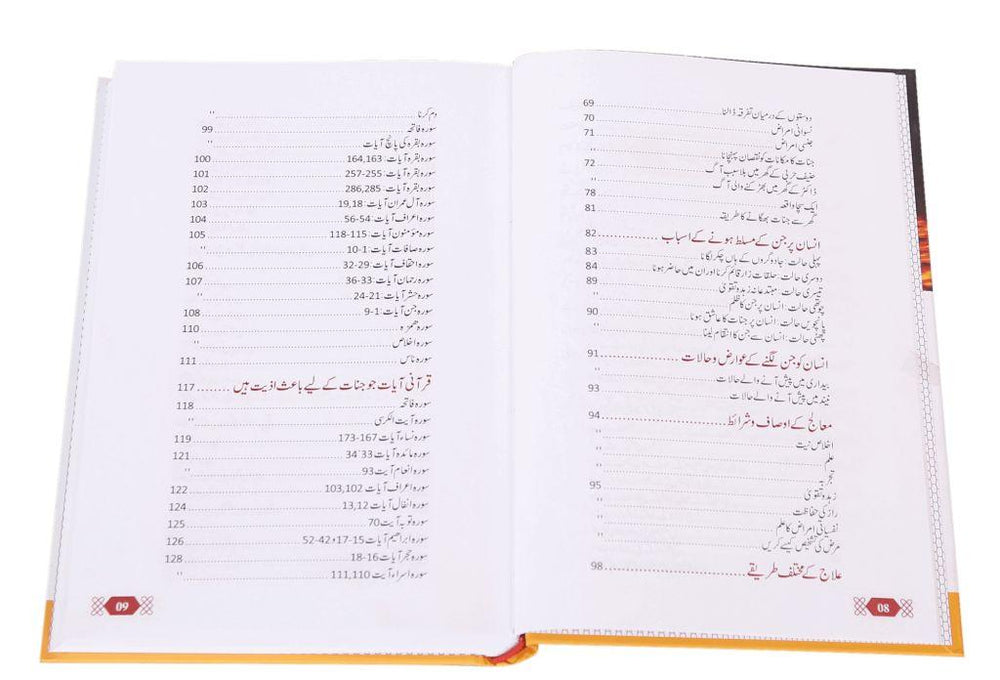 دوستوں کے درمیان تفرقہ ڈالنا 69
نسوانی امراض 70
جنسی امراض 71
جنات کا مکانات کو نقصان پہنچانا "
حنیف حربی کے گھر میں بلا سبب آگ 72
ڈاکٹر کے گھر میں بھڑکنے والی آگ "
ایک سچا واقعہ 78
گھر سے جنات بھگانے کا طریقہ 81
انسان پر جن کے مسلط ہونے کے اسباب 82
پہلی حالت: جادوگروں کے ہاں چکر لگانا 83
دوسری حالت: حلقات زار قائم کرنا اور ان میں حاضر ہونا 84
تیسری حالت: مبتدعانہ زہد و تقویٰ 89
چوتھی حالت: انسان پر جن کا ظلم "
پانچویں حالت: انسان پر جنات کا عاشق ہونا 90
چھٹی حالت: انسان سے جن کا انتقام لینا "
انسان کو جن لگنے کے عوارض و حالات 91
بیداری میں پیش آنے والے حالات "
نیند میں پیش آنے والے حالات 93
معالج کے اوصاف و شرائط 94
اخلاص نیت "
علم "
تجربہ "
زہد و تقویٰ 95
راز کی حفاظت "
نفسیاتی امراض کا علم "
مرض کی تشخیص کیسے کریں "
علاج کے مختلف طریقے 98
08
دم کرنا "
سورہ فاتحہ 99
سورہ بقرہ کی پانچ آیات "
سورہ بقرہ آیات: 164,163 100
سورہ بقرہ آیات: 255-257 101
سورہ بقرہ آیات: 286,285 102
سورہ آل عمران آیات: 19,18 103
سورہ اعراف آیات: 54-56 104
سورہ مؤمنون آیات: 115-118 105
سورہ صافات آیات: 1-10 "
سورہ احقاف آیات: 29-32 106
سورہ رحمان آیات: 33-36 107
سورہ حشر آیات: 21-24 "
سورہ جن آیات: 1-9 108
سورہ ھمزہ 110
سورہ اخلاص "
سورہ ناس 111
قرآنی آیات جو جنات کے لیے باعث اذیت ہیں 117
سورہ فاتحہ 118
سورہ آیت الکرسی "
سورہ نساء آیات 167-173 119
سورہ مائدہ آیات 33:34 121
سورہ انعام آیت 93 "
سورہ اعراف آیات 103,102 122
سورہ انفال آیات 13,12 124
سورہ توبہ آیت 70 125
سورہ ابراھیم آیات 15-17 و 42-52 126
سورہ حجر آیات 16-18 128
سورہ اسراء آیت 111,110 "
09